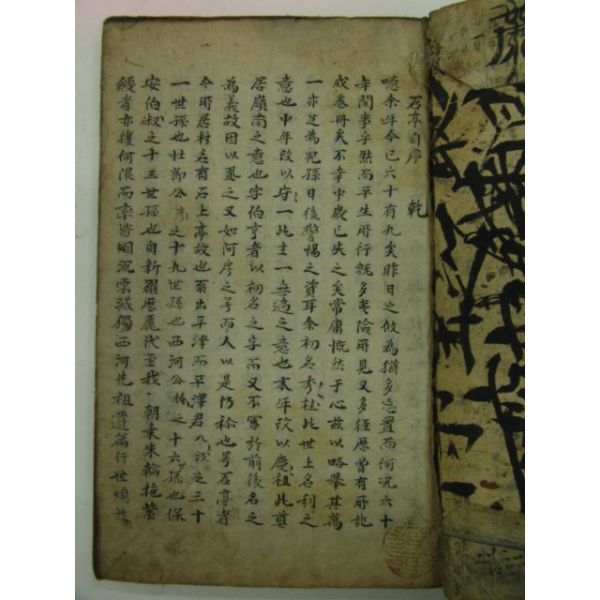 石亭自序　乾
噫余年今已六十有九矣昨日之攸為猶多忘置而何況六十
年間事乎然而平生所行旣多夷險所見又多經歷曾有所記
成卷冊矣不幸中歲已失之矣常庸慨然于心茲以略擧其萬
一亦足為兒孫日後警惕之資耳余初名秀桂此世上名利之
意也中年改以守一此主一無適之意也末年改以慶祖此奠
居嶺南之意也字伯亨者以初名之字而又不冪於前後名之
為義故因以仍之又如何序之号而人以是仍称也号石亭者
今所居村名有石上亭故也系出平津而平澤君八及之三十
一世孫也壯節公之十九世孫也西河公椿之十六孫也保
安伯淑之十三世孫也自新羅歷麗代至我朝乘朱輪拖紫
綬者亦復何限而率皆烟沉雲藏獨西河先祖遺篇行世